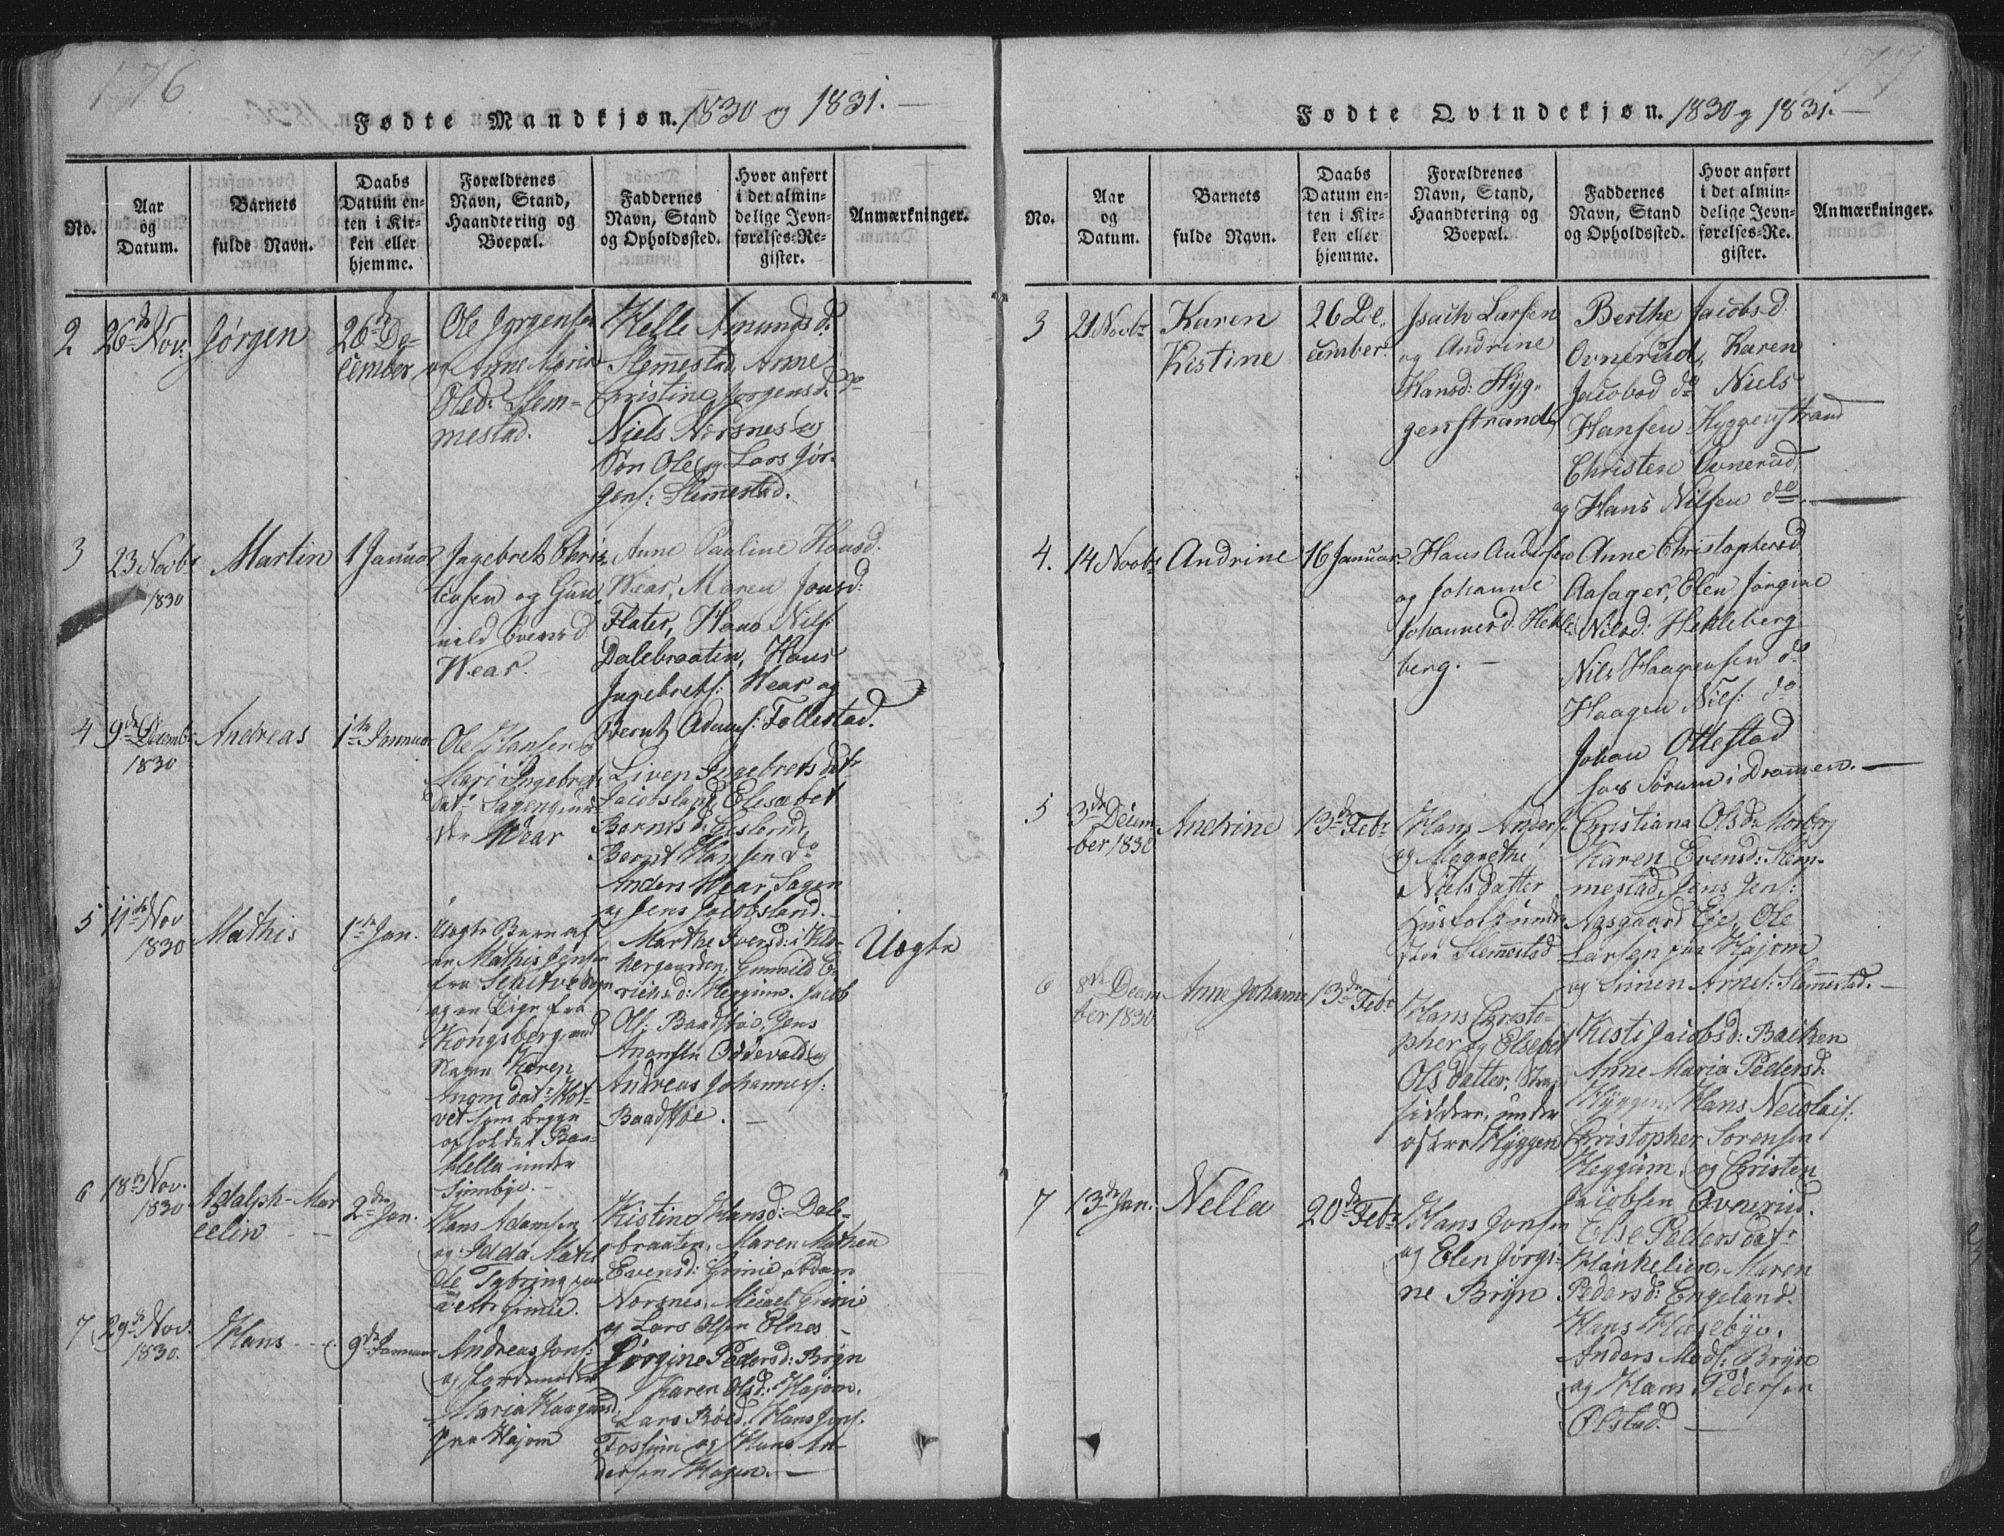 176
Fødte Mandkjøn. 1830 og 1831.
No.
Aar
og
Datum.
Barnets
fulde Navn.
Daabs
Datum en-
ten i Kir-
ken eller
hjemme.
Forældrenes
Navn, Stand,
Haandtering og
Boepæl.
Faddernes
Navn, Stand
og Opholdssted.
Hvor anført
i det almin-
delige Jevn-
førelses-Re-
gister.
Anmærkninger.
2
26de Nov:
Jørgen
26de De-
cember
Ole Jørgensen
og Anne Maria
Olesd: Slem-
mestad.
Helle Amundsd:
Slemmestad, Anne
Christine Jorgensd. do
Niels Nærsnes og
Søn Ole og Lars Jør-
gens: Slemmestad.
3
23 Novbr
1830
Martin
1 Januar
Ingebret Chris-
tensen og Gun-
nild Evensd
Wear.
Anne Pauline Hansd:
Wear, Maren Jonsd:
Flater, Hans Nils:
Dalebraaten, Hans
Ingebrets: Wear og
Bernt Adams: Follestad.
4
9de Decemb:
1830
Andreas
1ste Januar
Ole Hansen og
Mari Ingebrets
dat: Sagen under
Wear
Liven Ingebretsdatr
Jacobsland, Elisabet
Berntsd: Gislerud,
Bernt Hansen do
Anders Wear Sagen
og Jens Jacobsland.
5
11te Nov
1830
Mathis
1ste Jan.
Uægte Barn af
en Mathis Jensen
fra
og en Pige fra
Kongsberg, ved
Navn Karen
som begge
opholdet
Hella under
Marthe Iversd: i Klo-
kergaarden, Gunnild E-
richsd: Heggum. Jacob
Ols: Baadstøe, Jens
Anansen Oddevald og
Andreas Johanness:
Baadstøe.
Uægte
6
18de Nov.
1830
Adalph-Mar
celiw
2den Jan.
Hans Adamsen
og Idda Matil
de Tybring paa
Grimie.
Kistine Hansd: Dale-
braaten, Maren Mathea
Evensd: Grimie, Adam
Narsnes, Micael Grimie
og Lars Olsen Elnes
7
29de Nov.
1830.
Hans
9de Januar
Andreas Jons:
og Jordemoder
Maria Haagensd
paa Højom
Jørgine Pedersd: Brøyn
Karen Olsd: Højom.
Lars Bøed, Hans Jons:
Fossum og Hans An-
dersen Hagen.
177
Fødte Qvindekjøn. 1830 og 1831.
No.
Aar
og
Datum.
Barnets
fulde Navn.
Daabs
Datum en-
ten i Kir-
ken eller
hjemme.
Forældrenes
Navn, Stand,
Haandtering og
Boepæl.
Faddernes
Navn, Stand
og Opholdssted.
Hvor anført
i det almin-
delige Jevn-
førelses-Re-
gister.
Anmærkninger.
3
21 Novbr
Karen
Kistine
26 De-
cember
Isach Larsen
og Andrine
Hansd: Hyg-
genstrand
Berthe Jacobsd:
Ovnerud, Karen
Jacobsd do Niels
Hansen Hyggenstrand
Christen Ovnerud,
og Hans Nilsen do
4.
14 Novbr
Andrine
16 Januar
Hans Andersen
og Johanne
Johannesd: Hekle-
berg.
Anne Christophersd
Aasager, Elen Jørgine
Nilsd: Hekleberg
Nils Haagensen do
Haagen Nils: do
Johan Ottestad
hos Sørum i Dramen.
5
3de Decem-
ber 1830
Andrine
13de Febr
Hans Anders:
og Magrethe
Nielsdatter
Husfolk under
Slemmestad
Christiana Olsdr Morberg
Karen Evensd: Slem-
mestad, Jens Jens:
Aasgaard Eje, Ole
Larsen paa Højom
og Simen Arnes: Slemmestad.
6
8de Decem-
ber 1830
Anne Johanne
13de Febr
Hans Christo-
pher og Elsebet
Olsdatter, Stran
siddere, under
østre Hyggen
Kisti Jacobsd: Bakken
Anne Maria Pedersd:
Hyggen, Hans Nicolais:
Christopher Sorensen
Heggum, og Christen
Jacobsen Ovnerud.
7
13de Jan:
Nella
20de Febr
Hans Jonsen
og Elen Jørgi-
ne Brøyn
Else Pedersdatr
Hankelien, Maren
Pedersd: Engeland.
Hans Husebye,
Anders Mads: Brøyn
og Hans Pedersen
Ølstad.